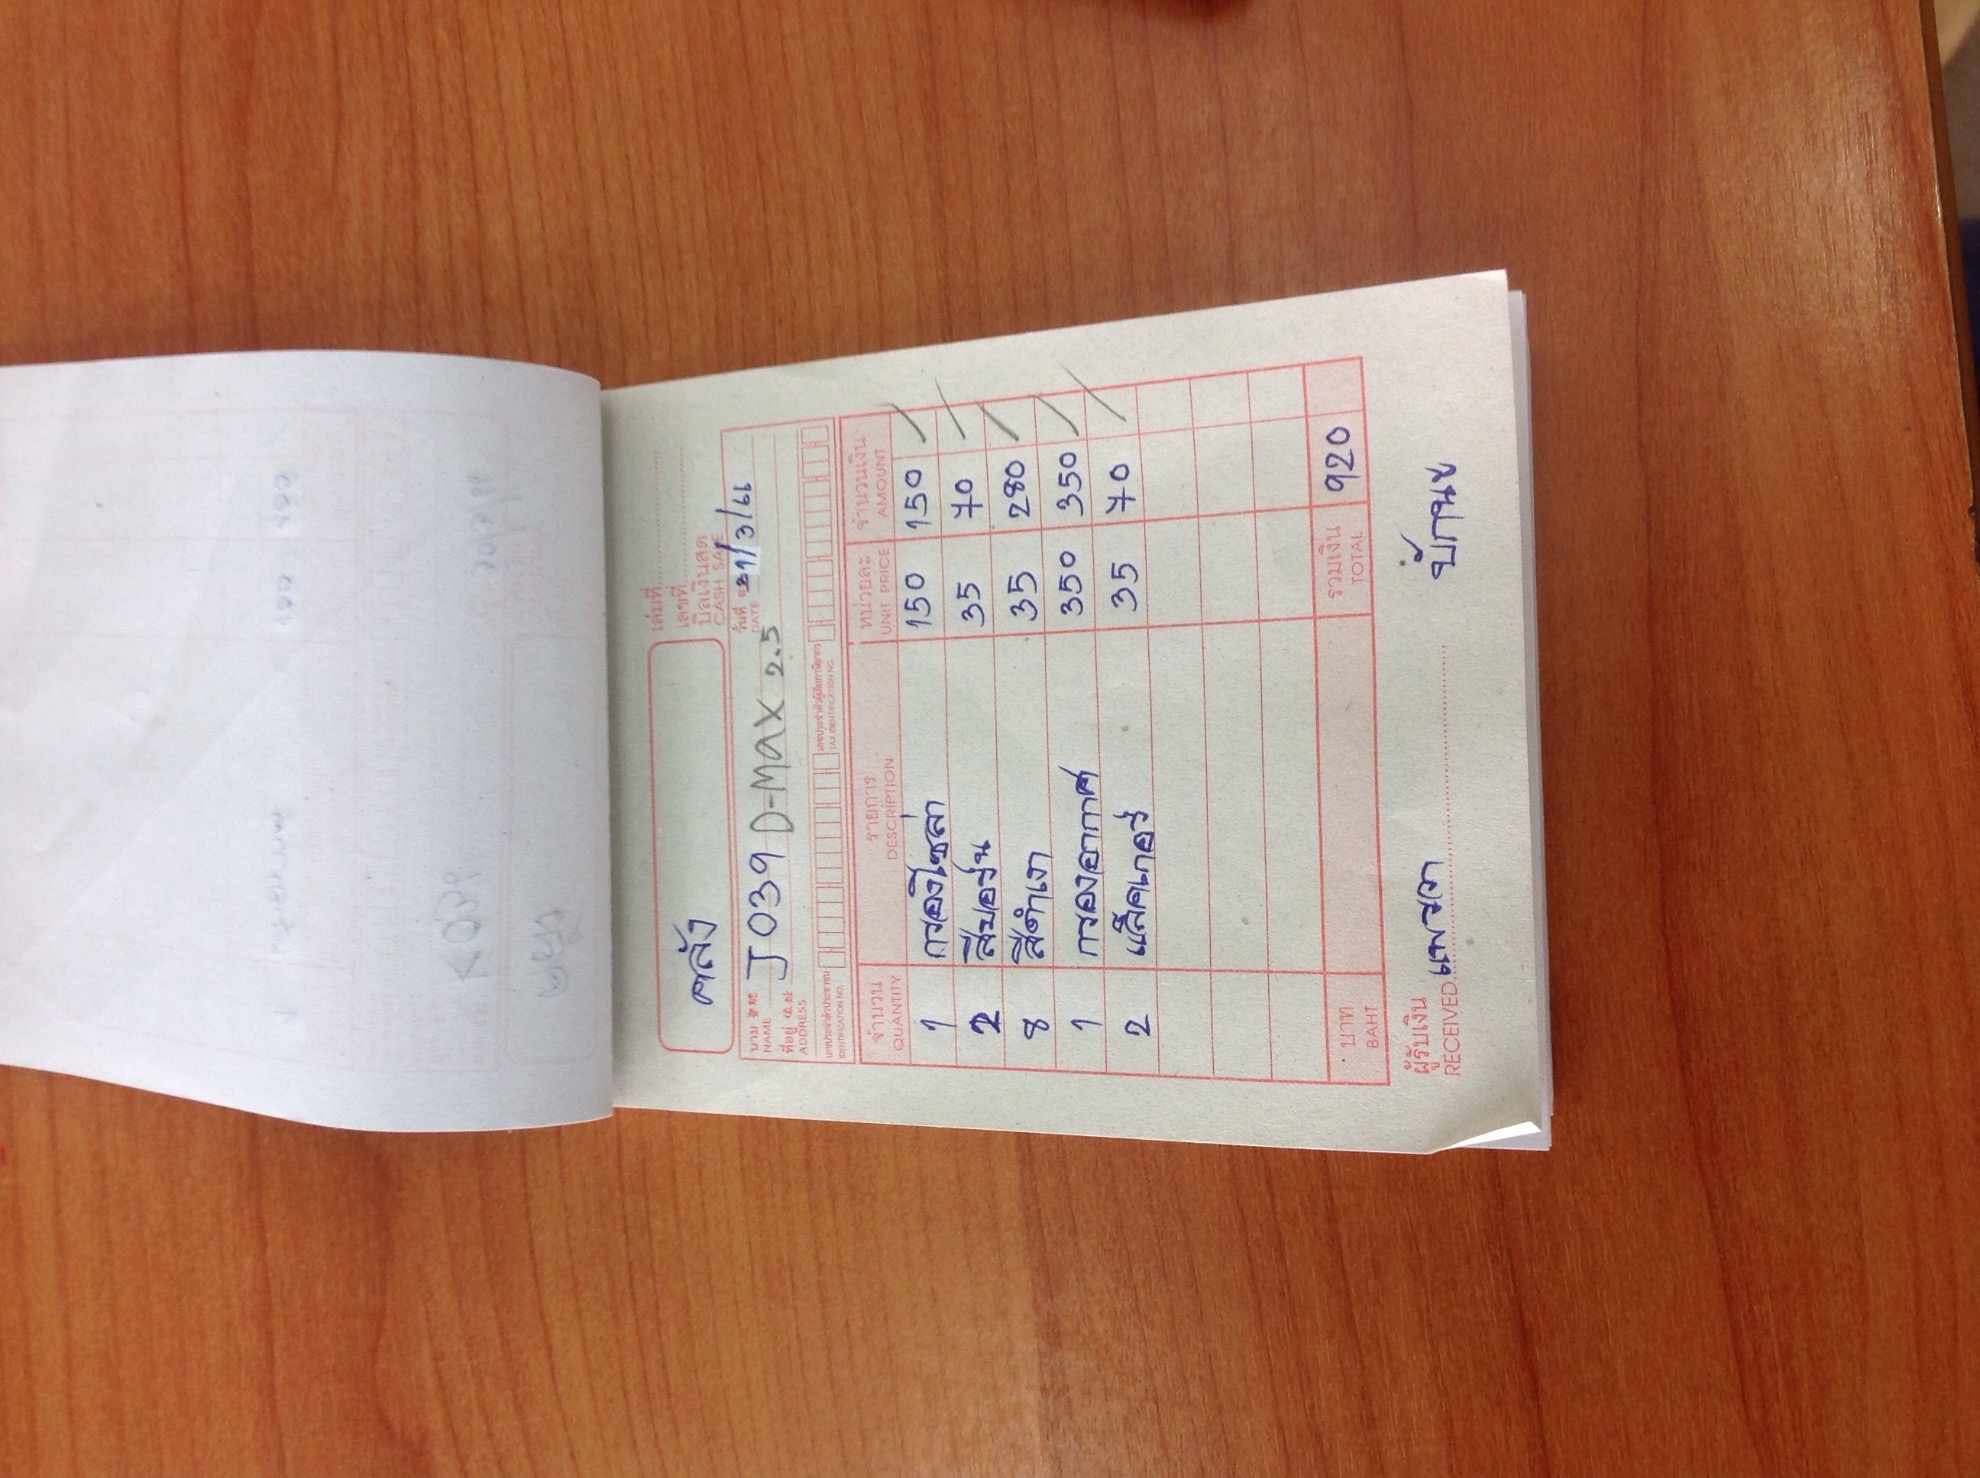 คลัง
เล่มที่
เลขที่
บิลเงินสด
CASH SALE
นาม
NAME
J 039 D-MAX 2.5
วันที่ 21/3/66
DATE
ที่อยู่
ADDRESS
เลขประจำตัวประชาชน
IDENTIFICATION NO.
เลขประจำตัวผู้เสียภาษีอากร
TAX IDENTIFICATION NO.
จำนวน รายการ หน่วยละ จำนวนเงิน
QUANTITY DESCRIPTION UNIT PRICE AMOUNT
1 กรองโซล่า 150 150
2 สีบอร์น 35 70
8 สีดำเงา 35 280
1 กรองอากาศ 350 350
2 แล็คเกอร์ 35 70
บาท รวมเงิน 920
BAHT TOTAL
ผู้รับเงิน แพรวา
RECEIVED